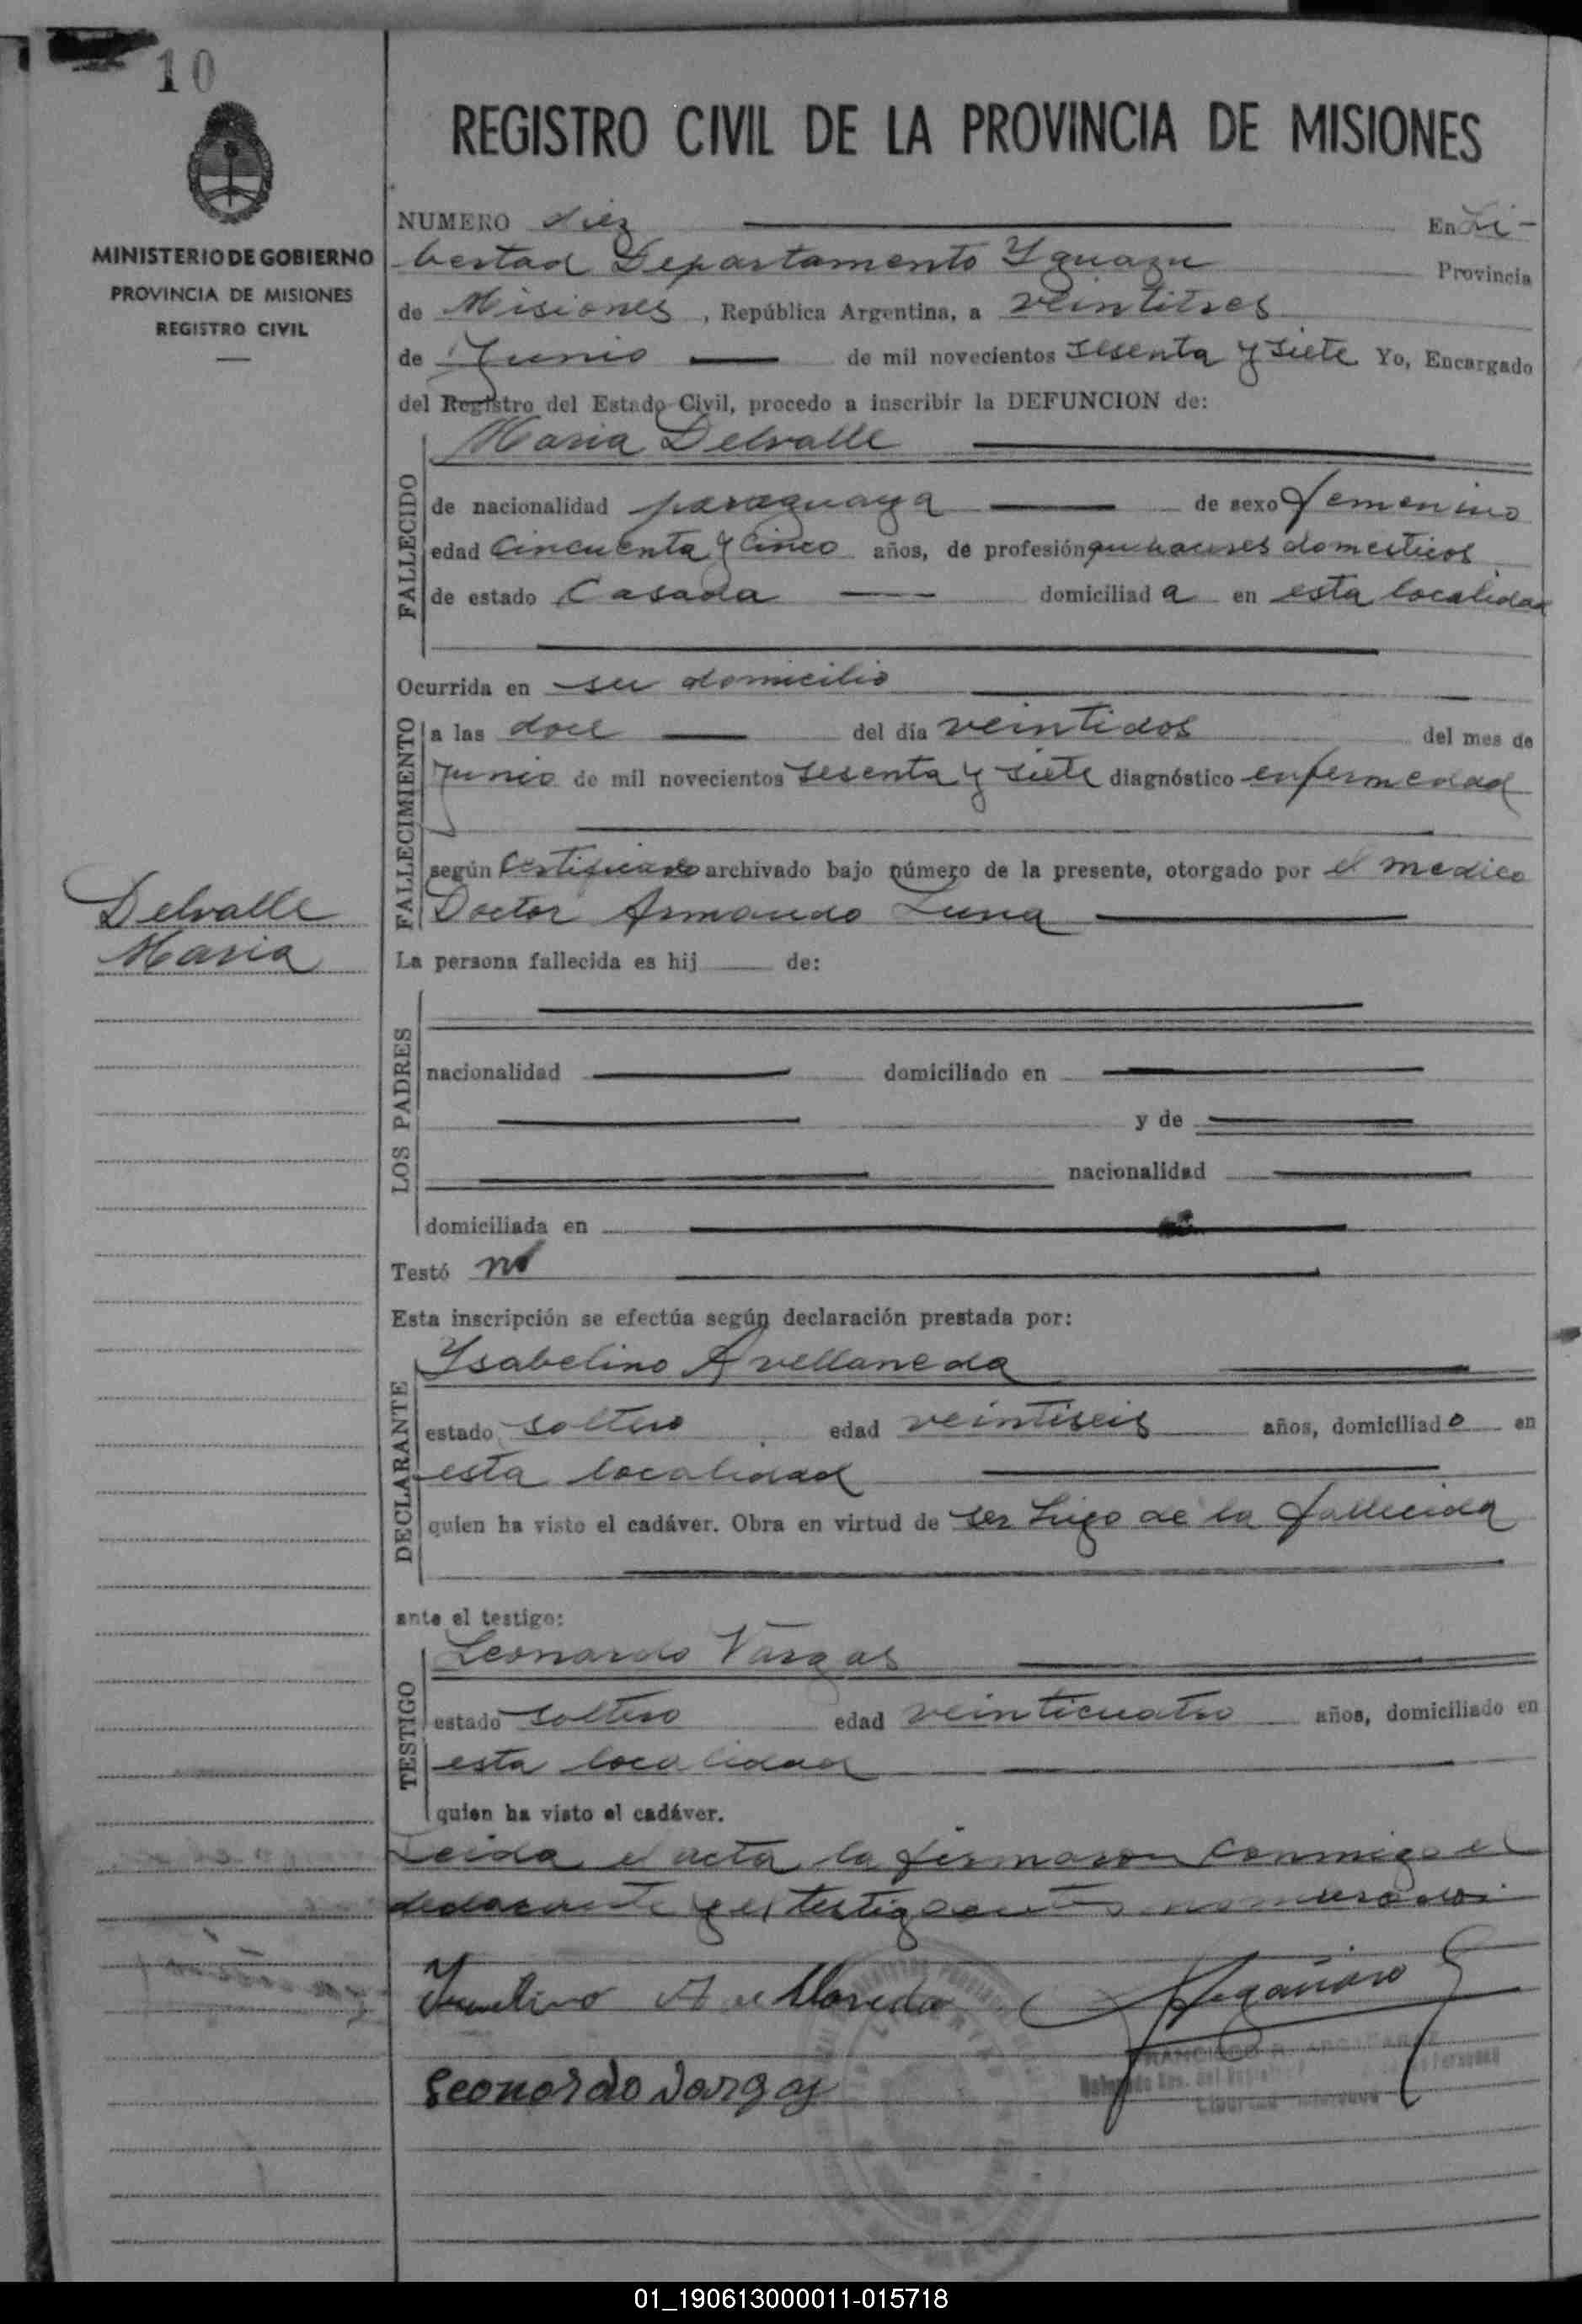 10
MINISTERIO DE GOBIERNO
PROVINCIA DE MISIONES
REGISTRO CIVIL
Delvalle
Maria
REGISTRO CIVIL DE LA PROVINCIA DE MISIONES
NUMERO diez En Li-
bertad Departamento Yguazu Provincia
de Misiones, República Argentina, a veintitres
de Junio de mil novecientos sesenta y siete Yo, Encargado
del Registro del Estado Civil, procedo a inscribir la DEFUNCION de:
Maria Delvalle
FALLECIDO
de nacionalidad paraguaya de sexo femenino
edad cincuenta y cinco años, de profesión quehaceres domesticos
de estado Casada domiciliad a en esta localidad
Ocurrida en su domicilio
FALLECIMIENTO
a las doce del día veintidos del mes de
junio de mil novecientos sesenta y siete diagnóstico enfermedad
según Certificado archivado bajo número de la presente, otorgado por el medico
Doctor Armando Luna
La persona fallecida es hij de:
LOS PADRES
nacionalidad domiciliado en
y de
nacionalidad
domiciliada en
Testó no
Esta inscripción se efectúa según declaración prestada por:
DECLARANTE
Ysabelino Avellaneda
estado soltero edad veintiseis años, domiciliado en
esta localidad
quien ha visto el cadáver. Obra en virtud de ser hijo de la fallecida
ante el testigo:
TESTIGO
Leonardo Vargas
estado soltero edad veinticuatro años, domiciliado en
esta localidad
quien ha visto el cadáver.
Leida el acta la firmaron conmigo el
declarante y el testigo antes nombrados
Avellaneda
Leonardo Vargas
FRANCISCO
Libertad
01_190613000011-015718